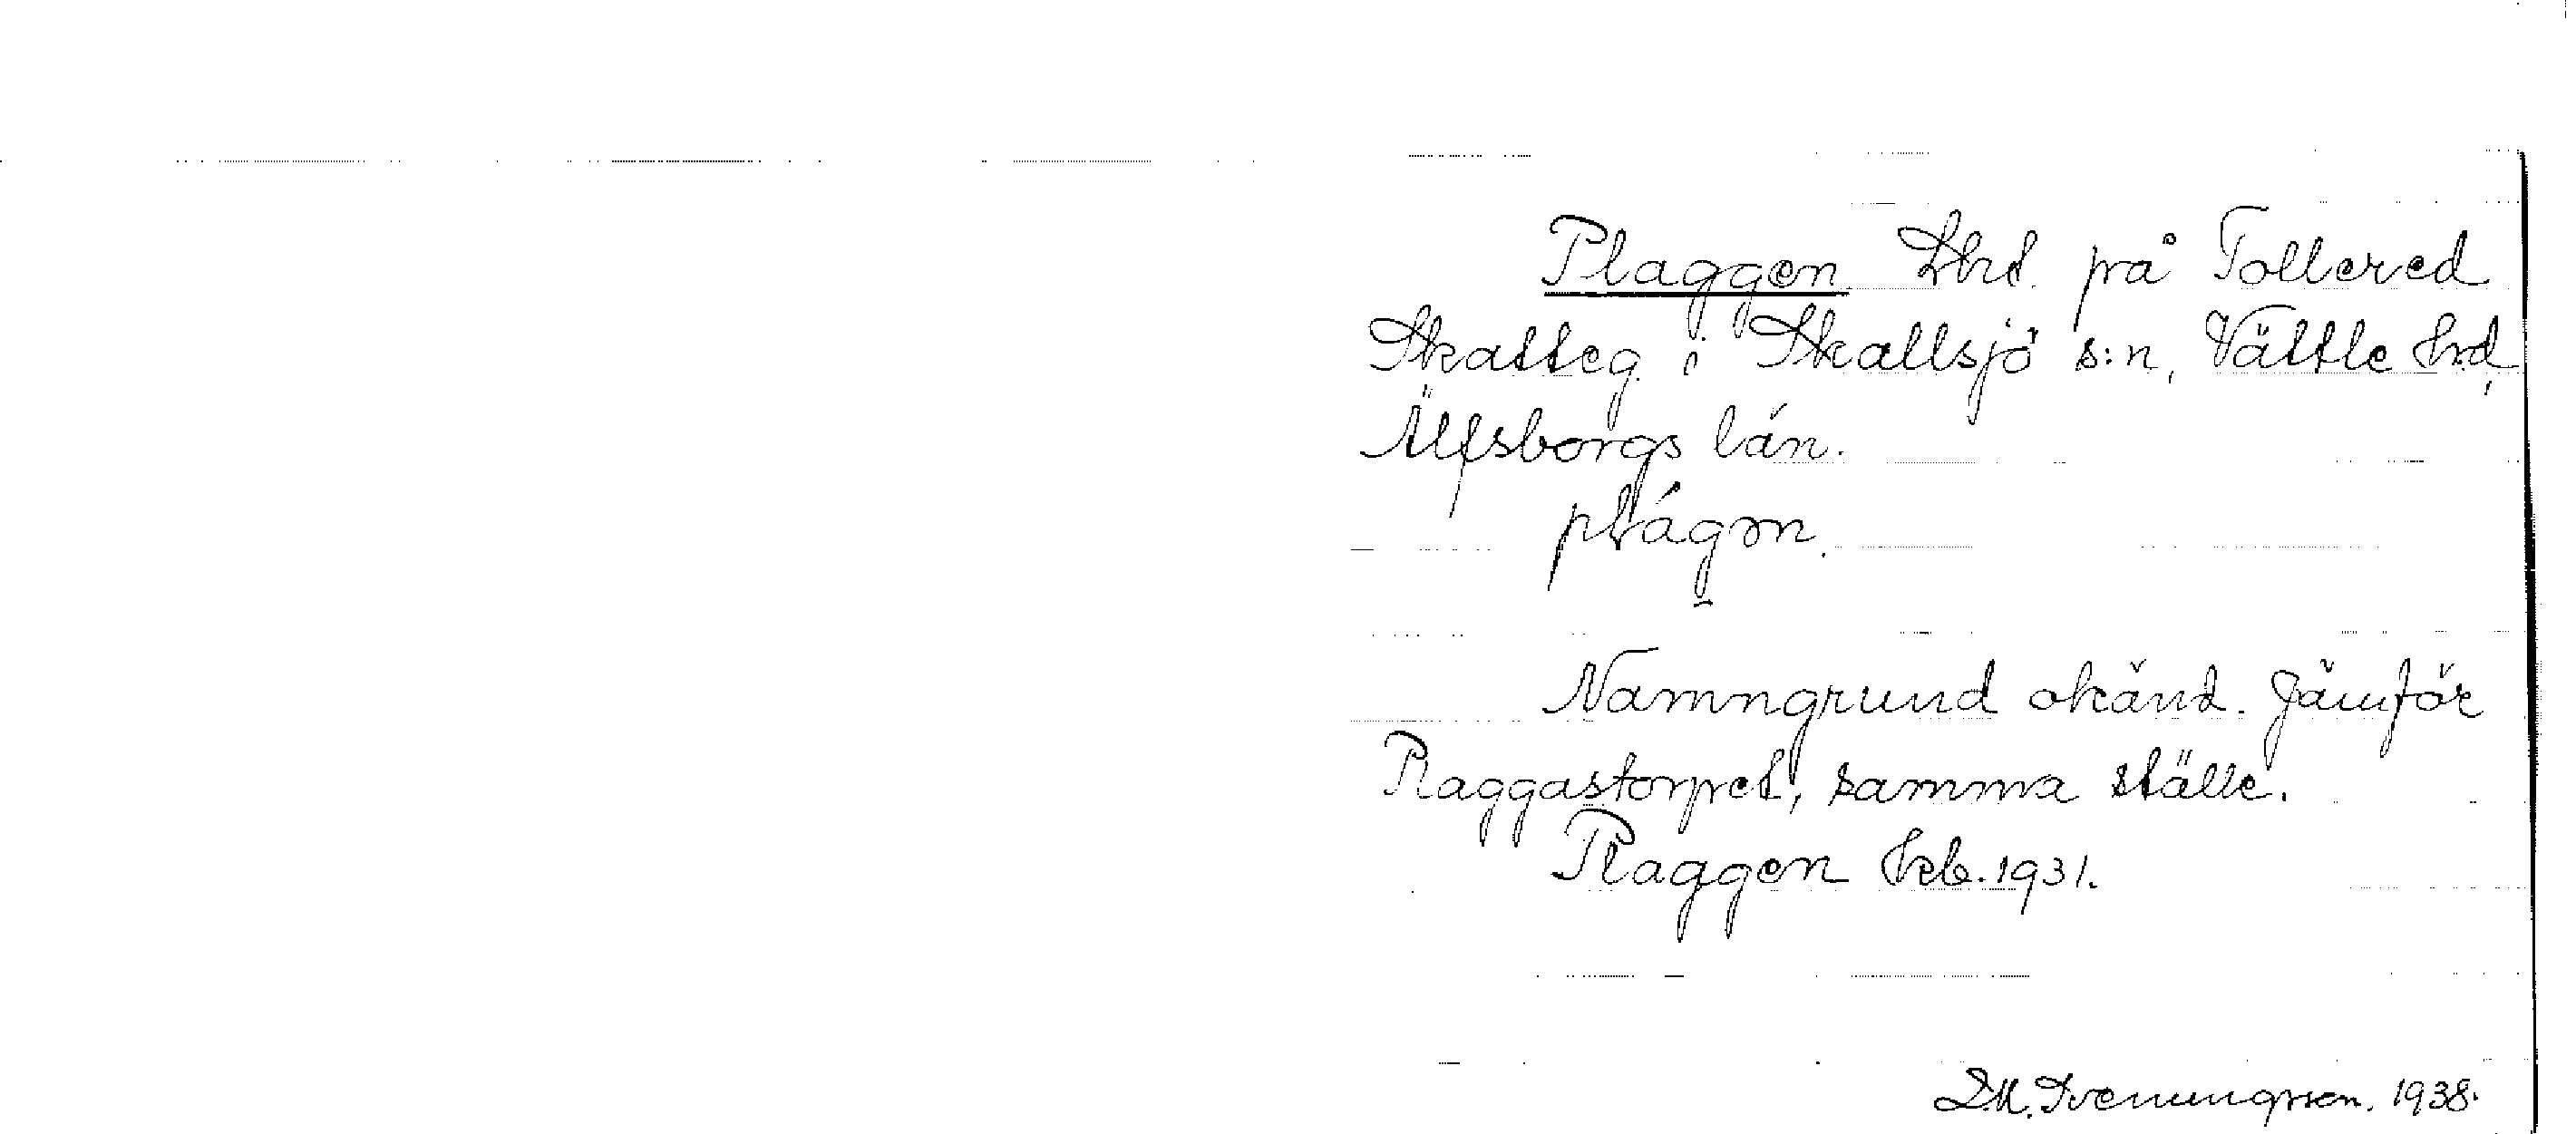 Plaggen. Lhd. på Tollered
Skatteg. i Skallsjö s:n, Vättle hrd,
Älfsborgs län.
plágən.
Namngrund okänd. Jämför
Plaggastorpet, samma ställe.
Plaggen Hfb. 1931.
D.M. Svenungsson. 1938.